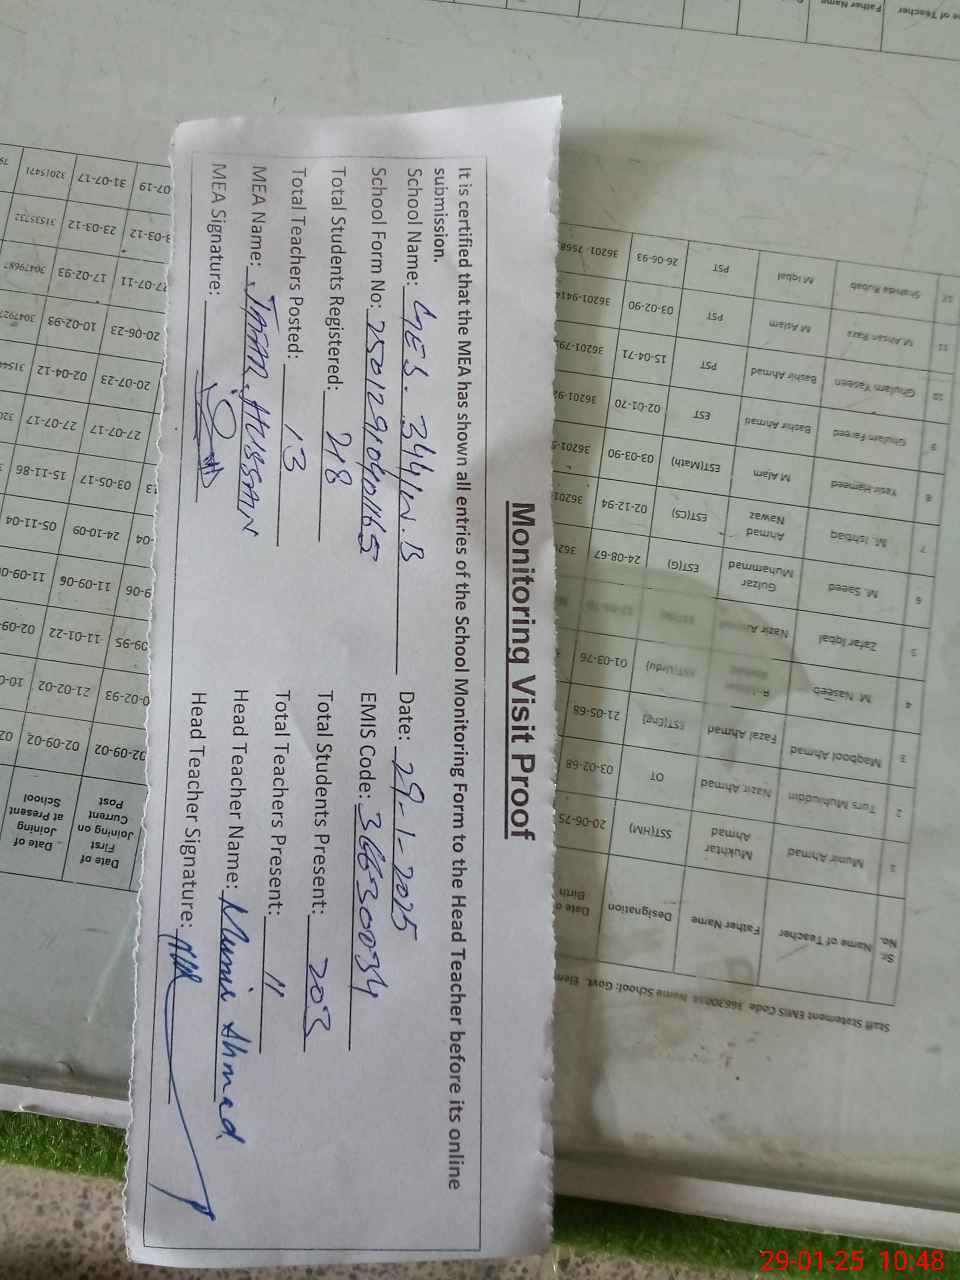 Monitoring Visit Proof
It is certified that the MEA has shown all entries of the School Monitoring Form to the Head Teacher before its online
submission.
School Name: GES. 344/W.B Date: 29-1-2025
School Form No: EMIS Code: 36630034
Total Students Registered: 218 Total Students Present: 203
Total Teachers Posted: 13 Total Teachers Present: 11
MEA Name: HUSSAIN Head Teacher Name: Munir Ahmad
MEA Signature: Head Teacher Signature:
Staff Statement EMIS Code Name School: Govt. Elem
Sr. No. Name of Teacher Father Name Designation Date o Birth
1 Munir Ahmad Mukhtar Ahmad SST(HM) 20-06-75
2 Turs Muhiuddin Nazir Ahmad OT 03-02-68
3 Maqbool Ahmad Fazal Ahmad EST(Eng) 21-05-68
4 M Naseeb EST(Urdu) 01-03-76
5 Zafar Iqbal Nazir Ahmad
6 M. Saeed Gulzar Muhammad EST(G) 24-08-67 362
7 M. Ishtiaq Ahmad Nawaz EST(CS) 02-12-94 36201
8 Yasir Hameed M Alam EST(Math) 03-03-90 36201-
9 Ghulam Fareed Bashir Ahmad EST 02-01-70 36201-
10 Ghulam Yaseen Bashir Ahmad PST 15-04-71 36201-
11 M Ahsan Raza M Aslam PST 03-02-90 36201-941
12 Shanda Rubab M Iqbal PST 26-06-93 36201-7568
Date of First Joining on Current Post Date of Joining at Present School
02-09-02 02-09-02 02
0-02-93 21-02-21 10-0
09-95 11-01-22 02-09
9-06 11-09-06 11-09-0
-04 24-10-09 05-11-04
13 03-05-17 15-11-86
27-07-17 27-07-17 320
20-07-23 02-04-12
20-06-23 10-02-93
27-07-11 17-02-93
3-03-12 23-03-12
07-19 31-07-17 32015471
me of Teacher Father Name
29-01-25 10:48